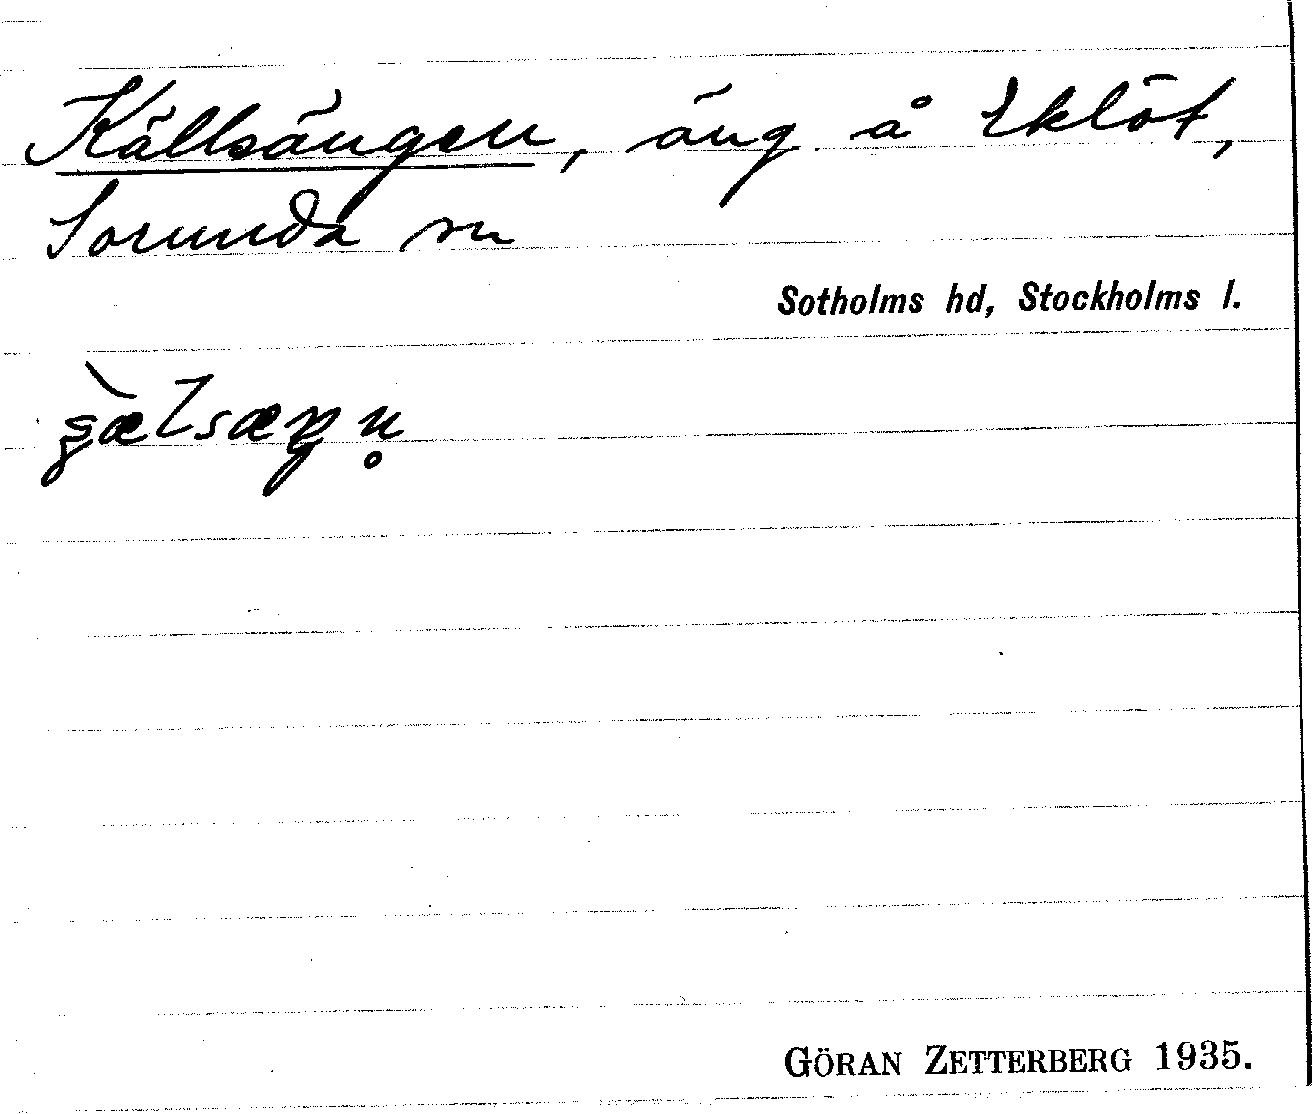 Källsängen, äng å Eklöt,
Sorunda sn
Sotholms hd, Stockholms l.
GÖRAN ZETTERBERG 1935.